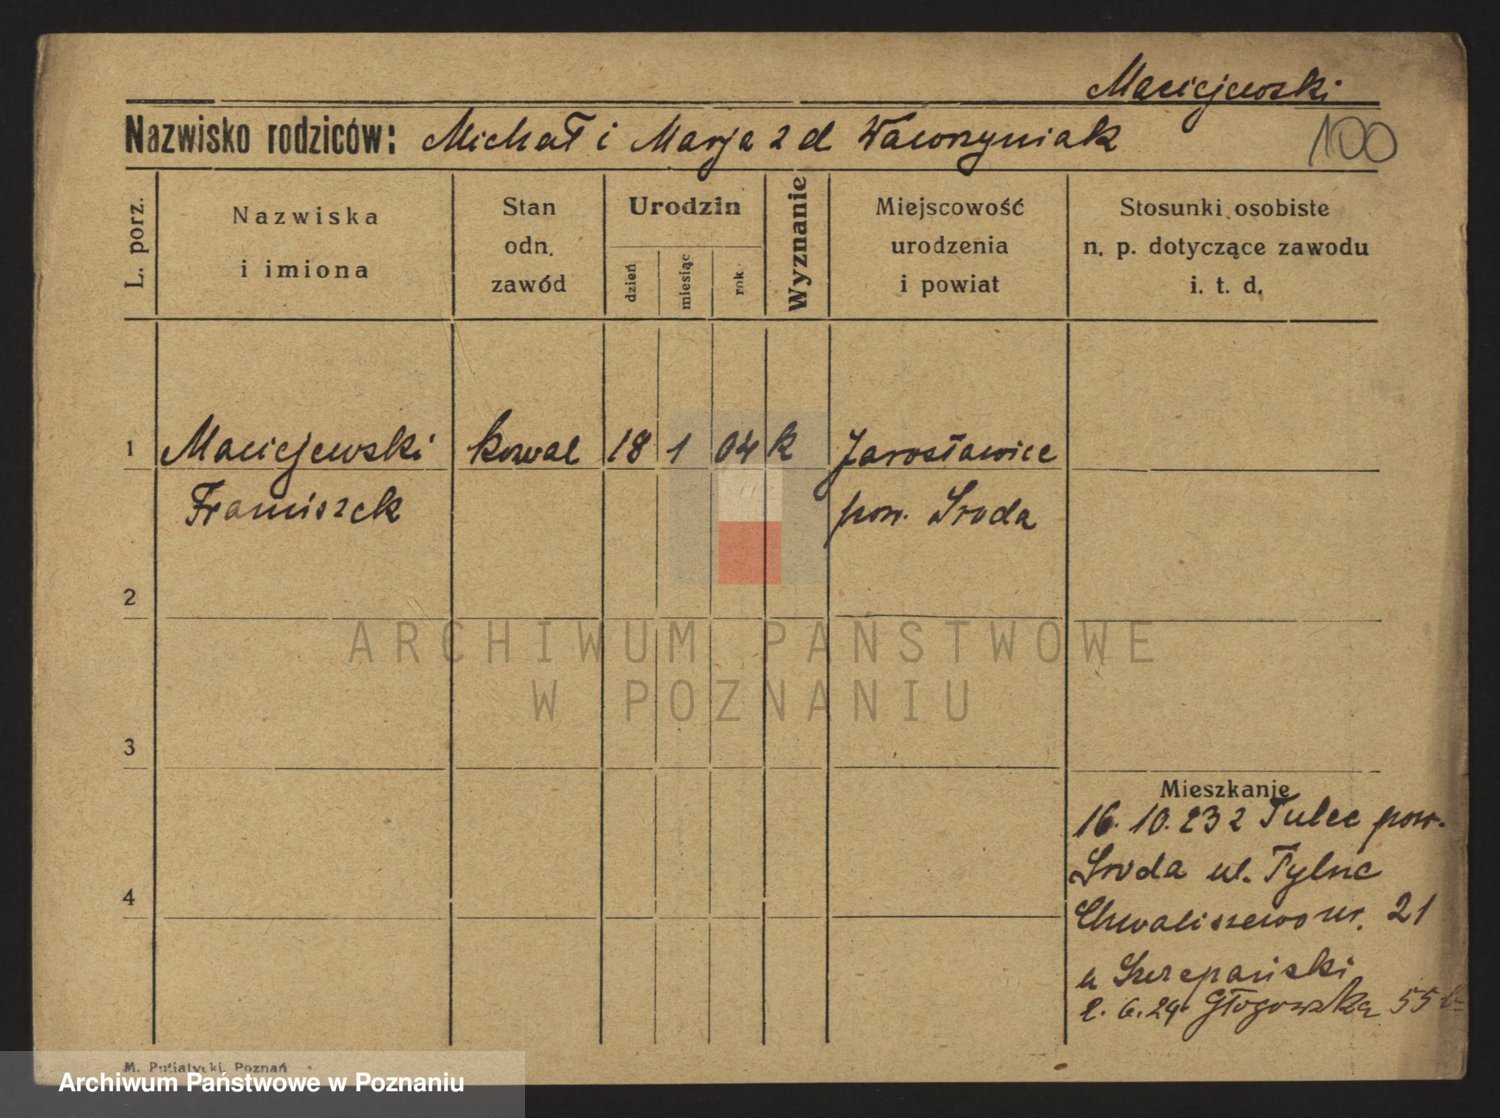 Maciejewski
Nazwisko rodziców: Michał i Marja z d Wawrzyniak
100
L. porz.
Nazwiska
i imiona
Stan
odn.
zawód
Urodzin
dzień
miesiąc
rok
Wyznanie
Miejscowość
urodzenia
i powiat
Stosunki osobiste
n. p. dotyczące zawodu
i. t. d.
1 Maciejewski kowal 18 1 04 k Jarosławice
Franciszek pow. Sroda
2
ARCHIWUM PAŃSTWOWE
W POZNANIU
3
Mieszkanie
16. 10. 23 z Tulec pow.
Sroda ul. Tylne
4
Chwaliszewo nr. 21
u Szczepański
2. 6. 24 Głogowska 55
M. Putiatycki, Poznań
Archiwum Państwowe w Poznaniu